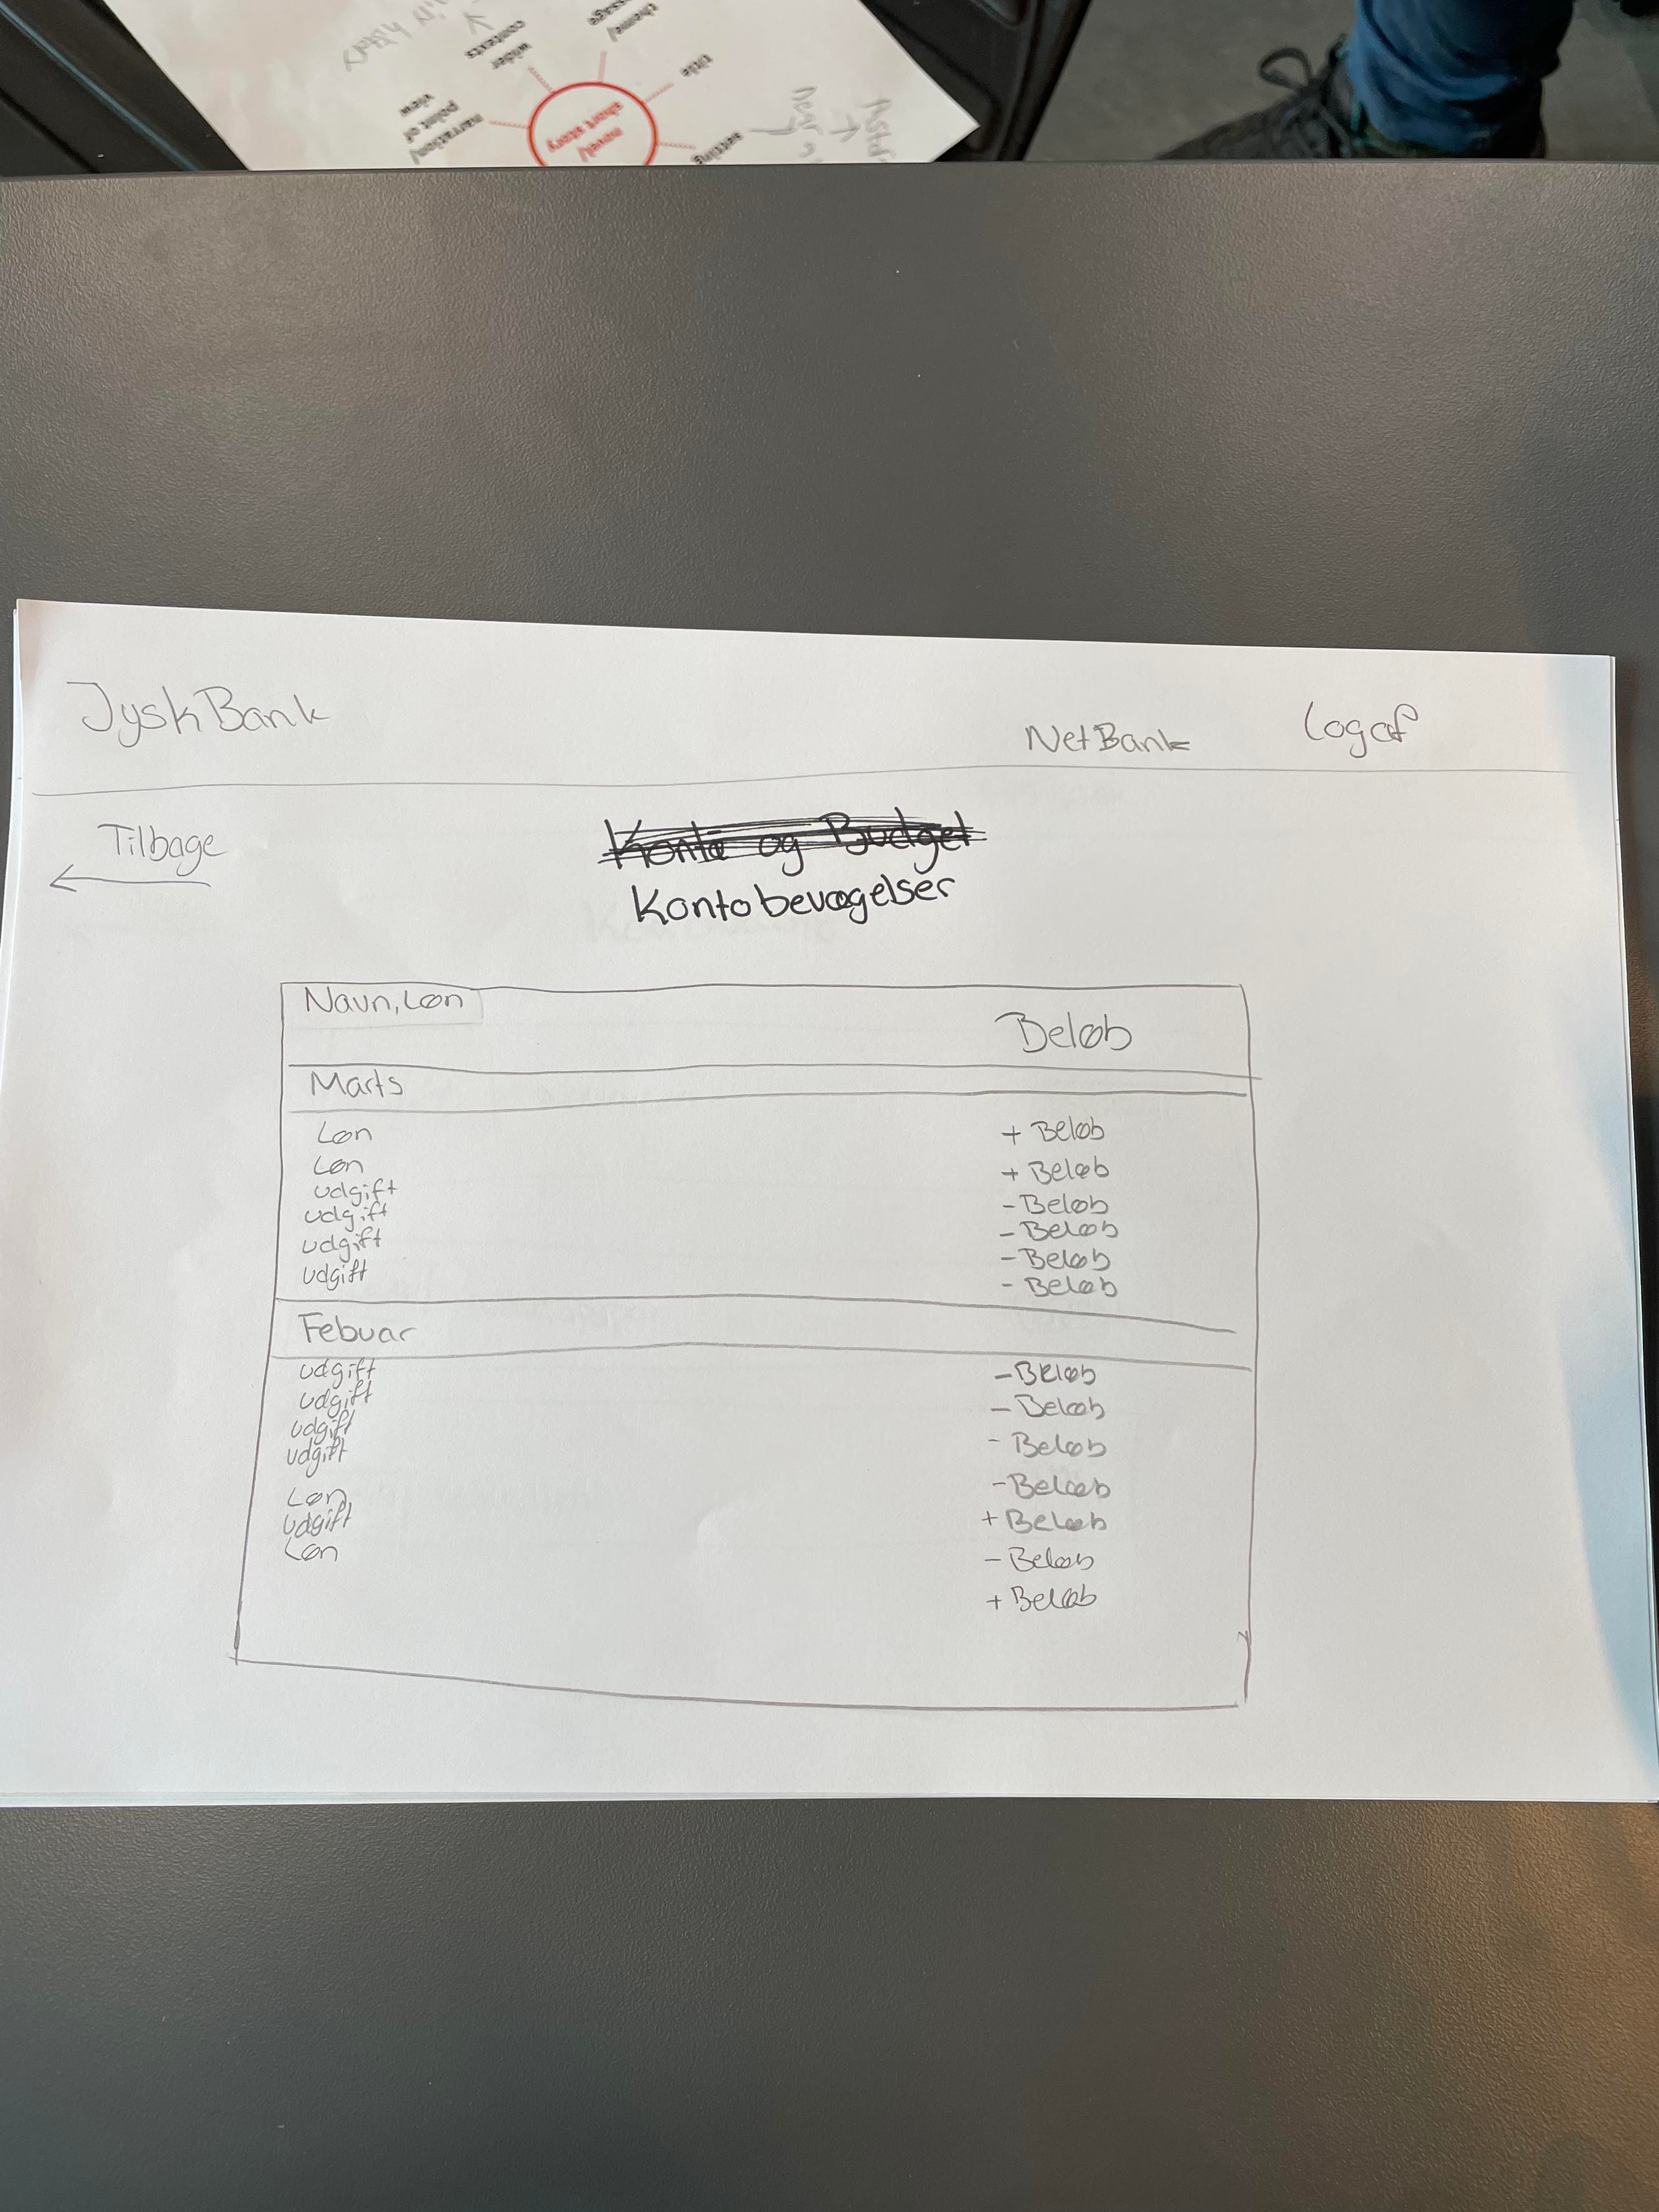 wider contexts
title
narration/ point of view
novel/ short story
setting
JyskBank
NetBank
Log af
Tilbage
Konto og Budget
Kontobevægelser
Navn, Løn
Beløb
Marts
Løn + Beløb
Løn + Beløb
Udgift - Beløb
Udgift - Beløb
Udgift - Beløb
Udgift - Beløb
Febuar
Udgift - Beløb
Udgift - Beløb
Udgift - Beløb
Udgift - Beløb
Løn + Beløb
Udgift - Beløb
Løn + Beløb